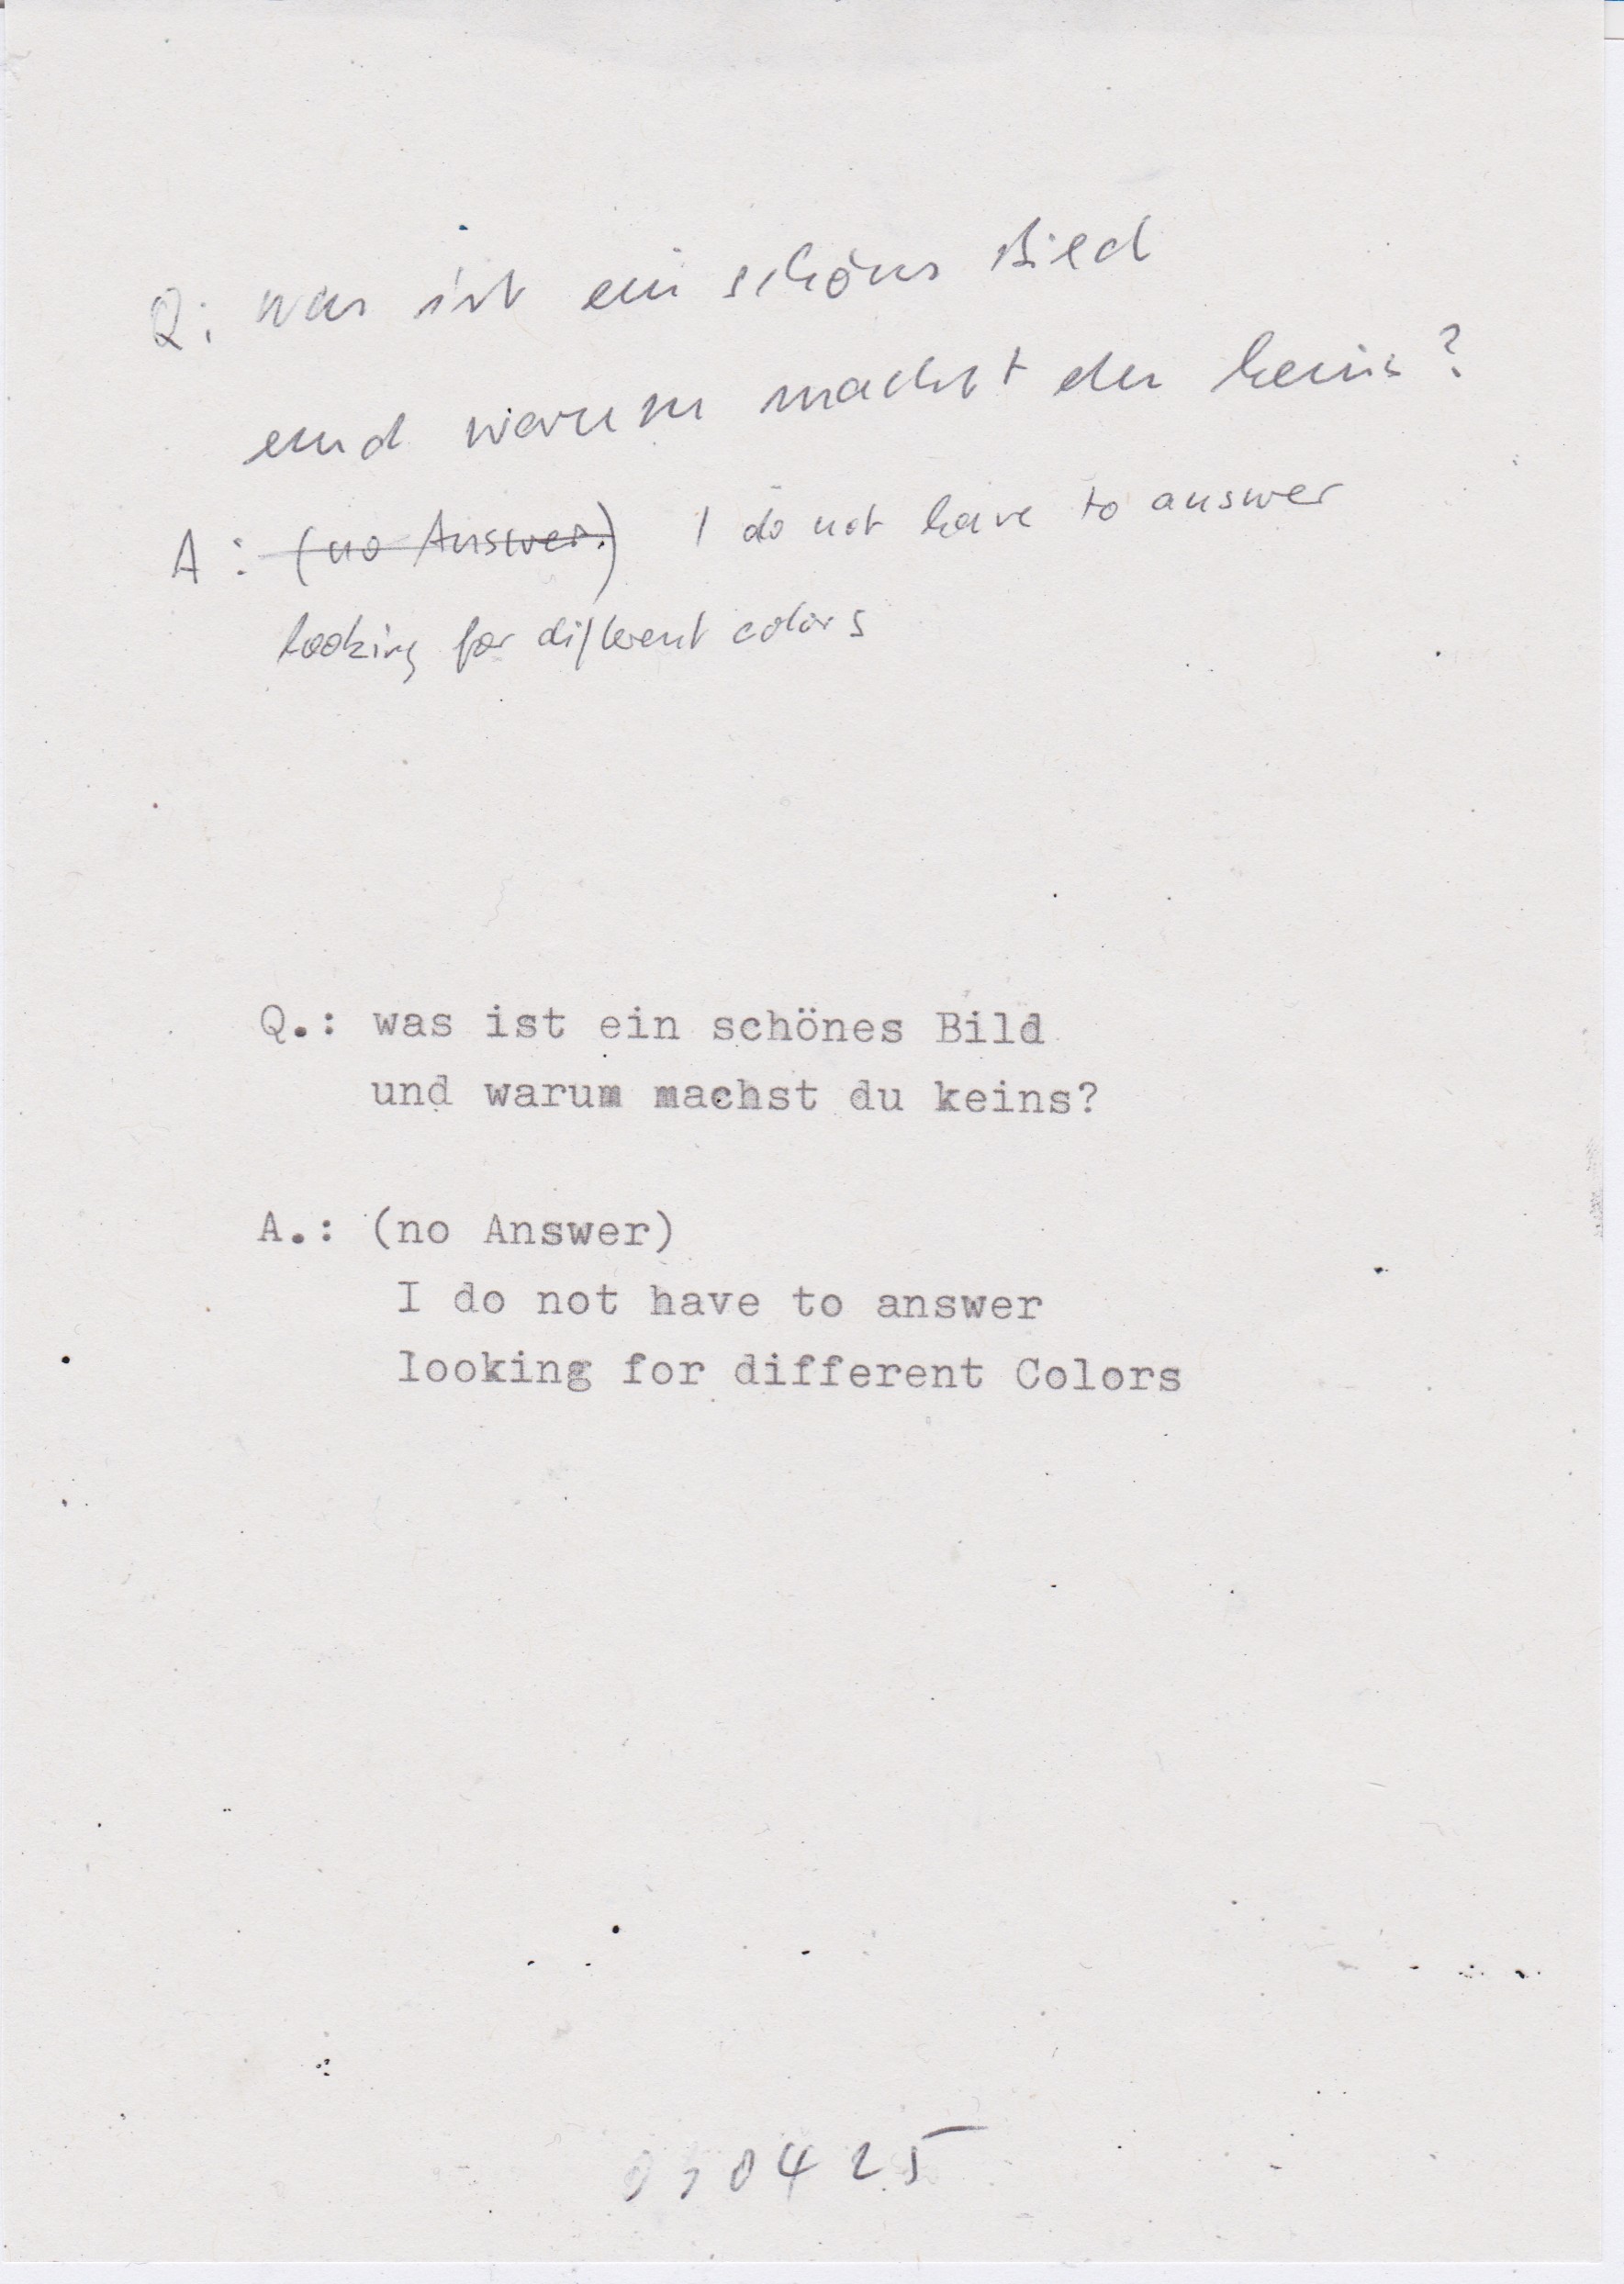 Q: was ist ein schönes Bild
und warum machst du keins?
A: (no Answer.) I do not have to answer
looking for different colors
Q.: was ist ein schönes Bild
und warum machst du keins?
A.: (no Answer)
I do not have to answer
looking for different Colors